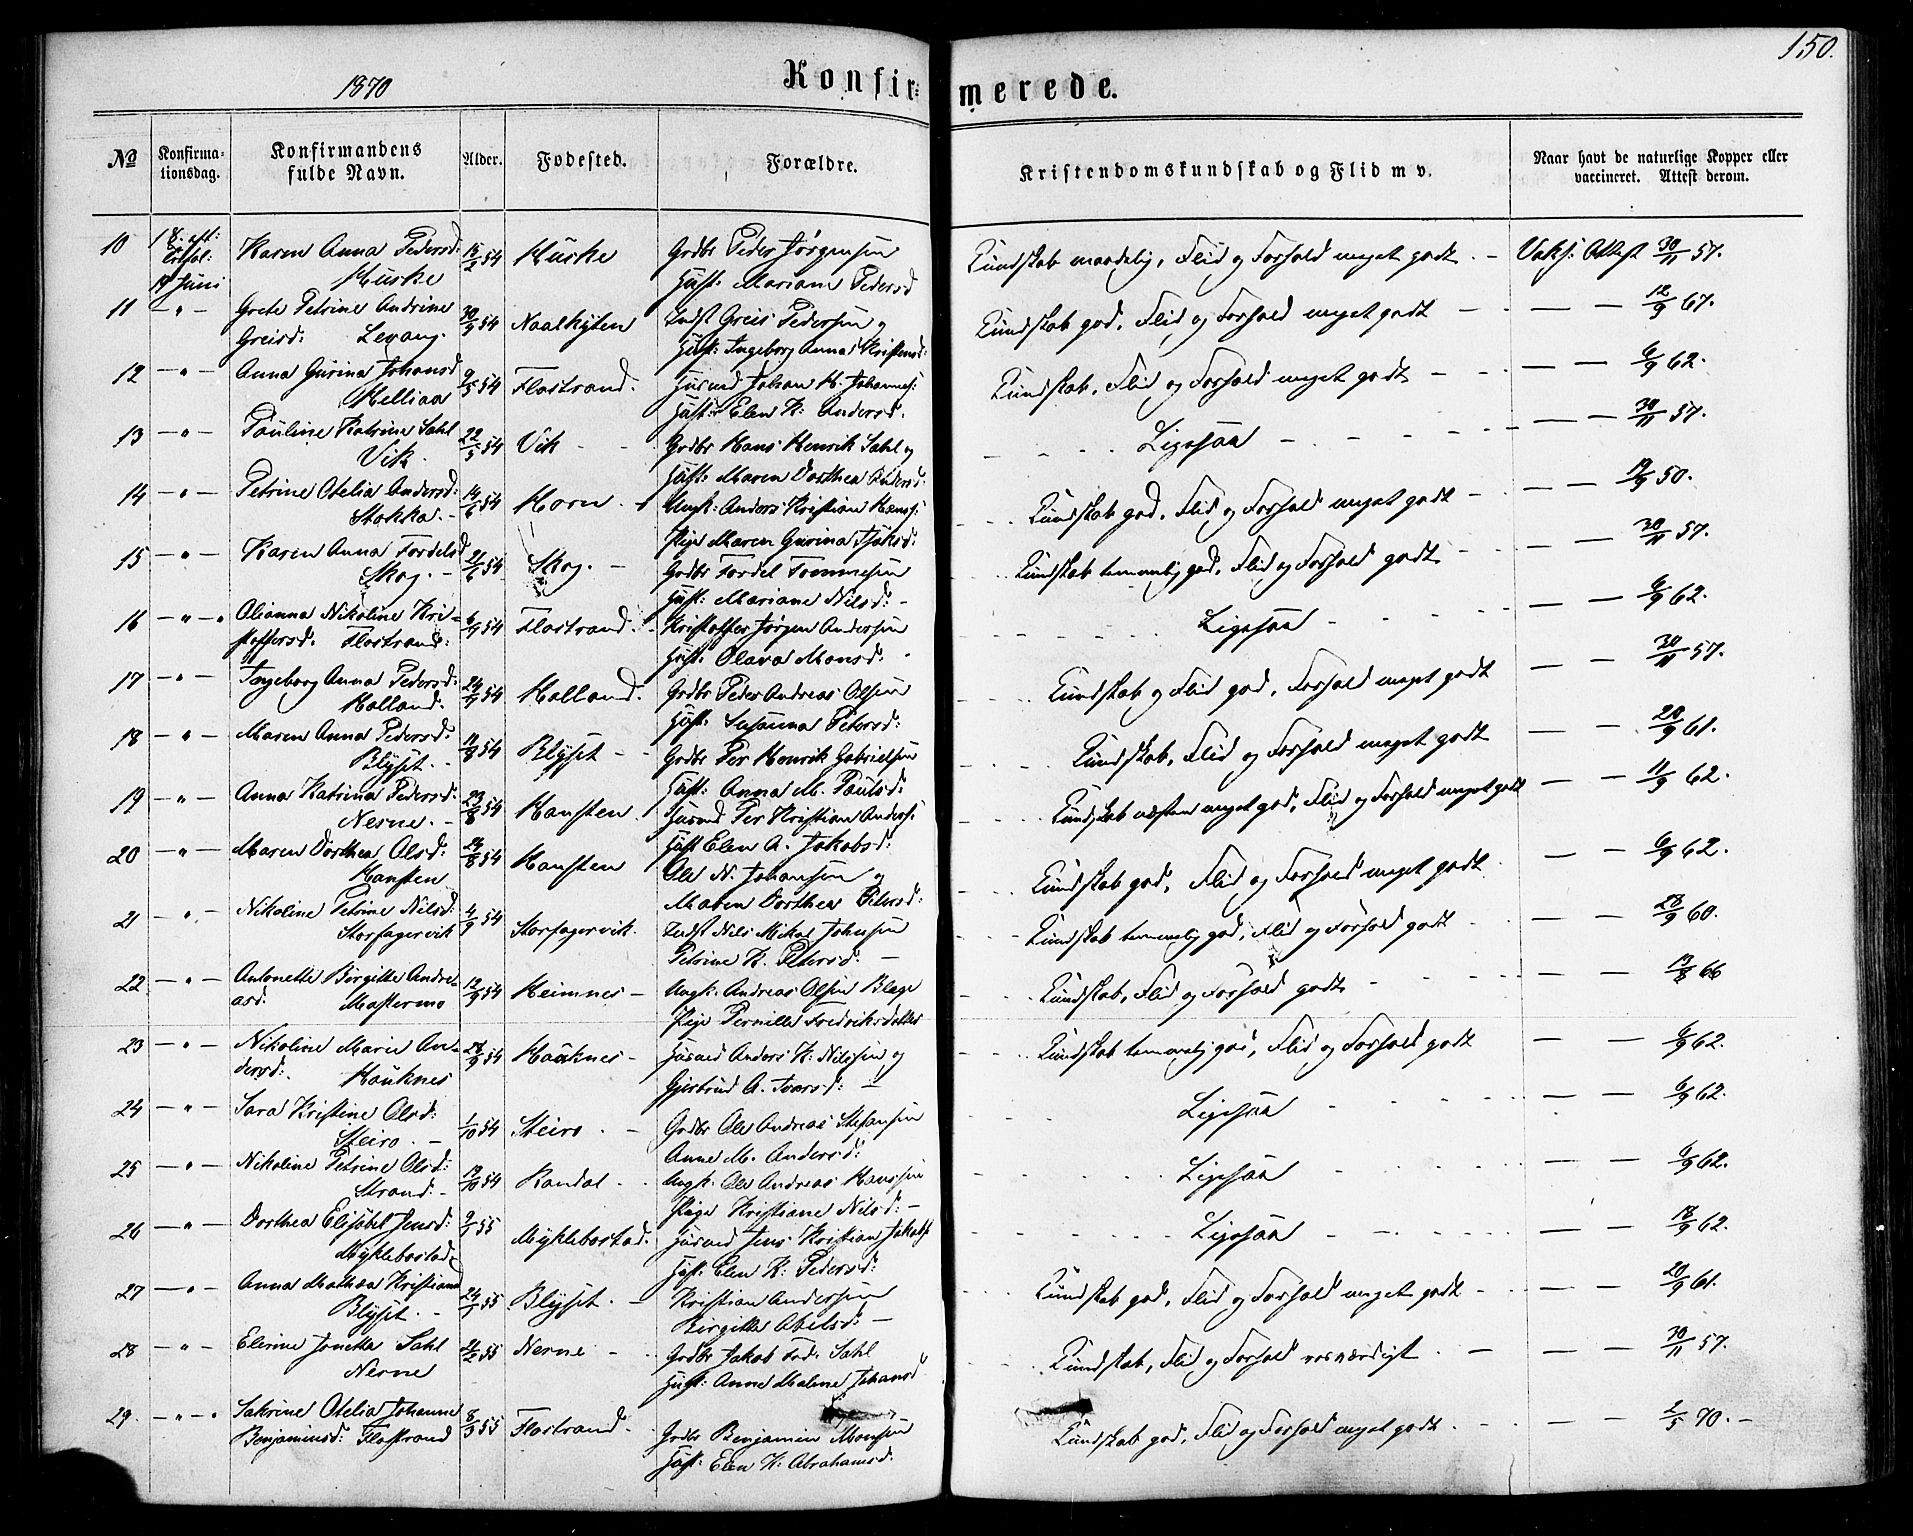 150.
1870
Konfir- merede.
No
Konfirma-
tionsdag.
Konfirmandens
fulde Navn.
Alder.
Fødested.
Forældre.
Kristendomskundskab og Flid m v.
Naar havt de naturlige Kopper eller
vaccineret. Attest derom.
10 Karen Anna Pedersd: 54 Huske Grdbr Peder Jörgensen Kundskab maadelig, Flid og Forhold meget godt. - Vaks: Attest 30/11 57.
17 Juni Huske Hust: Mariane Pedersd
11 - " - Grete Petrine Andrine 30/9 54 Naalhyten Indst Greis Pedersen og Kundskab god, Flid og Forhold meget godt - - - 12/9 67.
Greisd: Levang. Hust: Ingeborg Anna Kristensd:
12 - " - Anna Gurina Johansd 9/5 54 Flostrand. Husmd Johan H. Johannes: Kundskab, Flid og Forhold meget godt - - - 6/9 62.
Helliaa Hust: Elen K: Andersd.
13 - " - Pauline Katrine Dahl 22/5 54 Vik - - Grdbr Hans Henrik Dahl og Ligesaa - - - 30/11 57.
Vik. Hust: Maren Dorthea Andersd.
14 - " - Petrine Otelia Andersd: 14/6 54 Horn. Ungk: Anders Kristian Hans: Kundskab god, Flid og Forhold meget godt - - - 19/9 50.
Stokka. - Pige Maren Gurina
15 " Karen Anna Tordelsd 21/6 54 Skog. - Grdbr Tordel Tommesen Kundskab temmelig god, Flid og Forhold godt - - - 30/11 57.
Skog. - Hust: Mariane Nilsd: -
16 - " - Olianna Nikoline Kri- 54 Flostrand. - Kristoffer Jørgen Andersen Ligesaa - - - 6/9 62.
stoffersd. Flostrand. Hust: Olava Monsd:
17 - " - Ingeborg Anna Pedersd: 24/7 54 Holland. Grdbr Peder Andreas Olsen Kundskab og Flid god, Forhold meget godt - - 30/11 57.
Holland. Hust: Susanna Petersd:
18 - " - Maren Anna Pedersd. 54 Blyset - - Grdbr Per Henrik Gabrielsen Kundskab, Flid og Forhold meget godt - - 20/9 61.
Blyset. - Hust: Anna M. Paulsd:
19 - " - Anna Katrina Pedersd. 23/8 54 Hansten. Husmd Per Kristian Anders: Kundskab næsten meget god, Flid og Forhold meget godt - - 11/9 62.
Nerne. - Hust Elen A. Jakobsd:
20 - " - Maren Dorthea Olsd: 24/8 54 Hansten Ole N. Johansen og Kundskab god, Flid og Forhold meget godt - - 6/9 62.
Hansten Maren Dorthea Petersd:
21 - " - Nikoline Petrine Nilsd: 4/9 54 Storfagervik. Indst Nils Mikal Johnsen Kundskab temmelig god, Flid og Forhold godt - - - 28/9 60.
Storfagervik Petrine K. Petersd: -
22 - " - Antonette Birgitte Andre- 12/9 54 Heimnes - Ungk: Andreas Olsen Kundskab, Flid og Forhold godt - - - 66
asd: Mastermo Pige Pernille Fredriksdatter
23 - " - Nikoline Marie An- 28/9 54 Hauknes - Husmd Anders K: Nilssen og Kundskab temmelig god, Flid og Forhold godt - - 6/9 62.
dersd: Hauknes Gjertrud A. Ivarsd: -
24 - " - Sara Kristine Olsd: 1/10 54 Steiro. - Grdbr Ole Andreas Stefansen Ligesaa - - 6/9 62.
Steiro. - Anne M. Andersd:
25 - " - Nikoline Petrine Olsd: 19/10 54 Randal - Ungk: Ole Andreas Hanssen Ligesaa - - - 6/9 62.
Strand. - Pige Kristiane Nilsd: -
26 - " - Dorthea Elisabet Jensd: 9/1 55 Myklebostad. Husmd Jens Kristian Jakobs Ligesaa - - - 18/9 62.
Myklebostad Hust: Elen K: Pedersd:
27 - " - Anna Mathea Kristiansd 24/1 55 Blyset. - Kristian Andersen Kundskab god, Flid og Forhold meget godt - - - 20/9 61.
Blyset. - Birgitte Abelsd: -
28 - " - Elerine Jonetta Dahl 21/2 55 Nerne - Grdbr Jakob Dahl Kundskab, Flid og Forhold rosværdigt - - - 30/11 57.
Nerne Hust: Anne Malene Johansd
29. - " - Sakrine Otelia Johanne 8/3 55 Flostrand. Grdbr Benjamin Monsen Kundskab god, Flid og Forhold meget godt - - - 2/5 70. -
Benjaminsd: Flostrand Hust: Elen K: Abrahamsd.